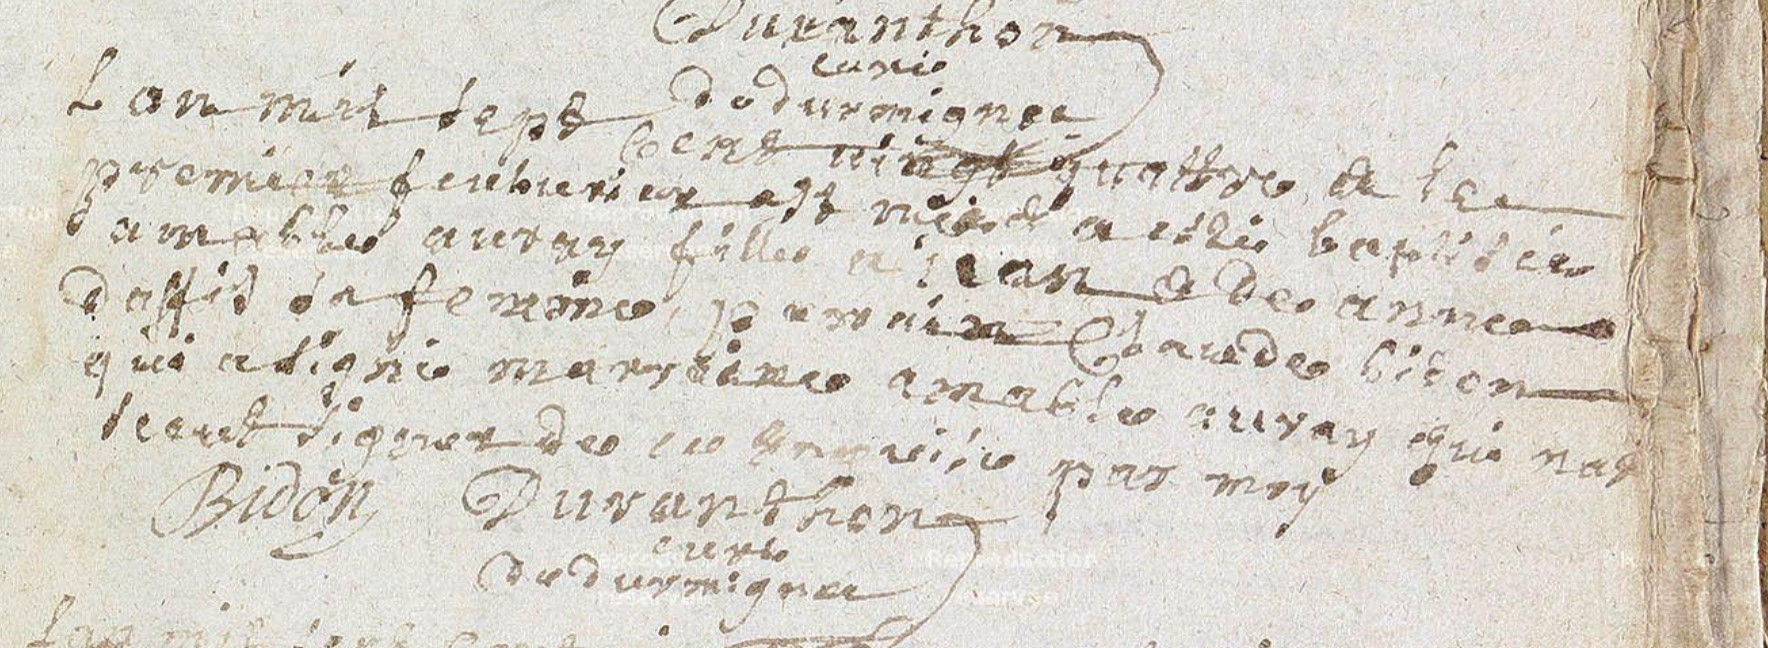 Duranthon
curé
de durmignac
Lan mil sept cent vingt quattre & le
premier feubvrier est née & a esté baptisée
amable auray fille a iean & de anne
dassis sa femme, parrain Claude bidon
qui a signé marraine amable auray qui na
sceut signer de ce enquise par moy
Bidon Duranthon
curé
de durmignac
Lan mil sept cent